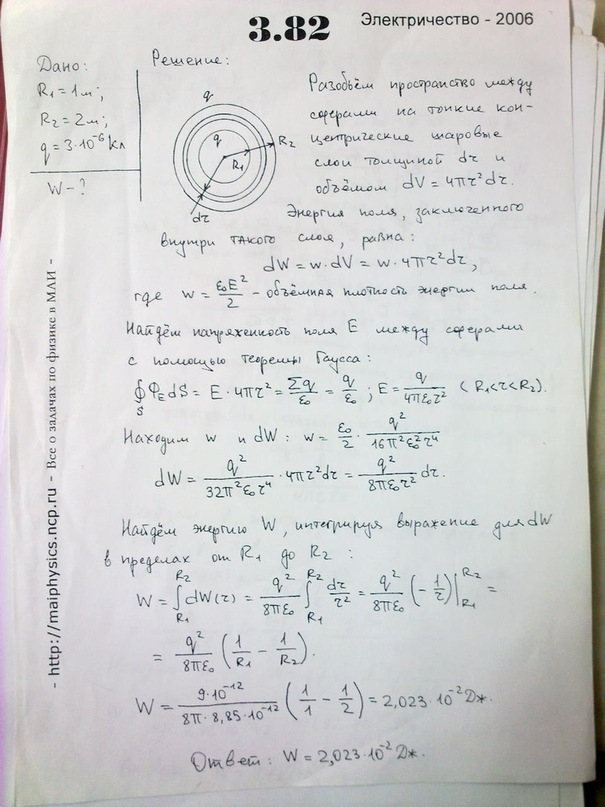 3.82
Электричество - 2006
Дано:
R₁ = 1м;
R₂ = 2м;
q = 3·10⁻⁶ Кл
W - ?
Решение:
q
q
R₁
R₂
dr
Разобьём пространство между
сферами на тонкие кон-
центрические шаровые
слои толщиной dr и
объёмом dV = 4πr²dr.
Энергия поля, заключенного
внутри такого слоя, равна:
dW = w·dV = w·4πr²dr,
где w = ε₀E²/2 - объёмная плотность энергии поля.
Найдём напряженность поля E между сферами
с помощью теоремы Гаусса:
∮_S Φ_E dS = E·4πr² = Σq/ε₀ = q/ε₀ ; E = q/4πε₀r² (R₁<r<R₂).
Находим w и dW: w = ε₀/2 · q²/16π²ε₀²r⁴
dW = q²/32π²ε₀r⁴ · 4πr²dr = q²/8πε₀r² dr.
Найдём энергию W, интегрируя выражение для dW
в пределах от R₁ до R₂:
W = ∫_R₁^R₂ dW(r) = q²/8πε₀ ∫_R₁^R₂ dr/r² = q²/8πε₀ (-1/r)|_R₁^R₂ =
= q²/8πε₀ (1/R₁ - 1/R₂).
W = 9·10⁻¹²/8π·8,85·10⁻¹² (1/1 - 1/2) = 2,023·10⁻² Дж.
Ответ: W = 2,023·10⁻² Дж.
- http://maiphysics.ncp.ru - Все о задачах по физике в МАИ -